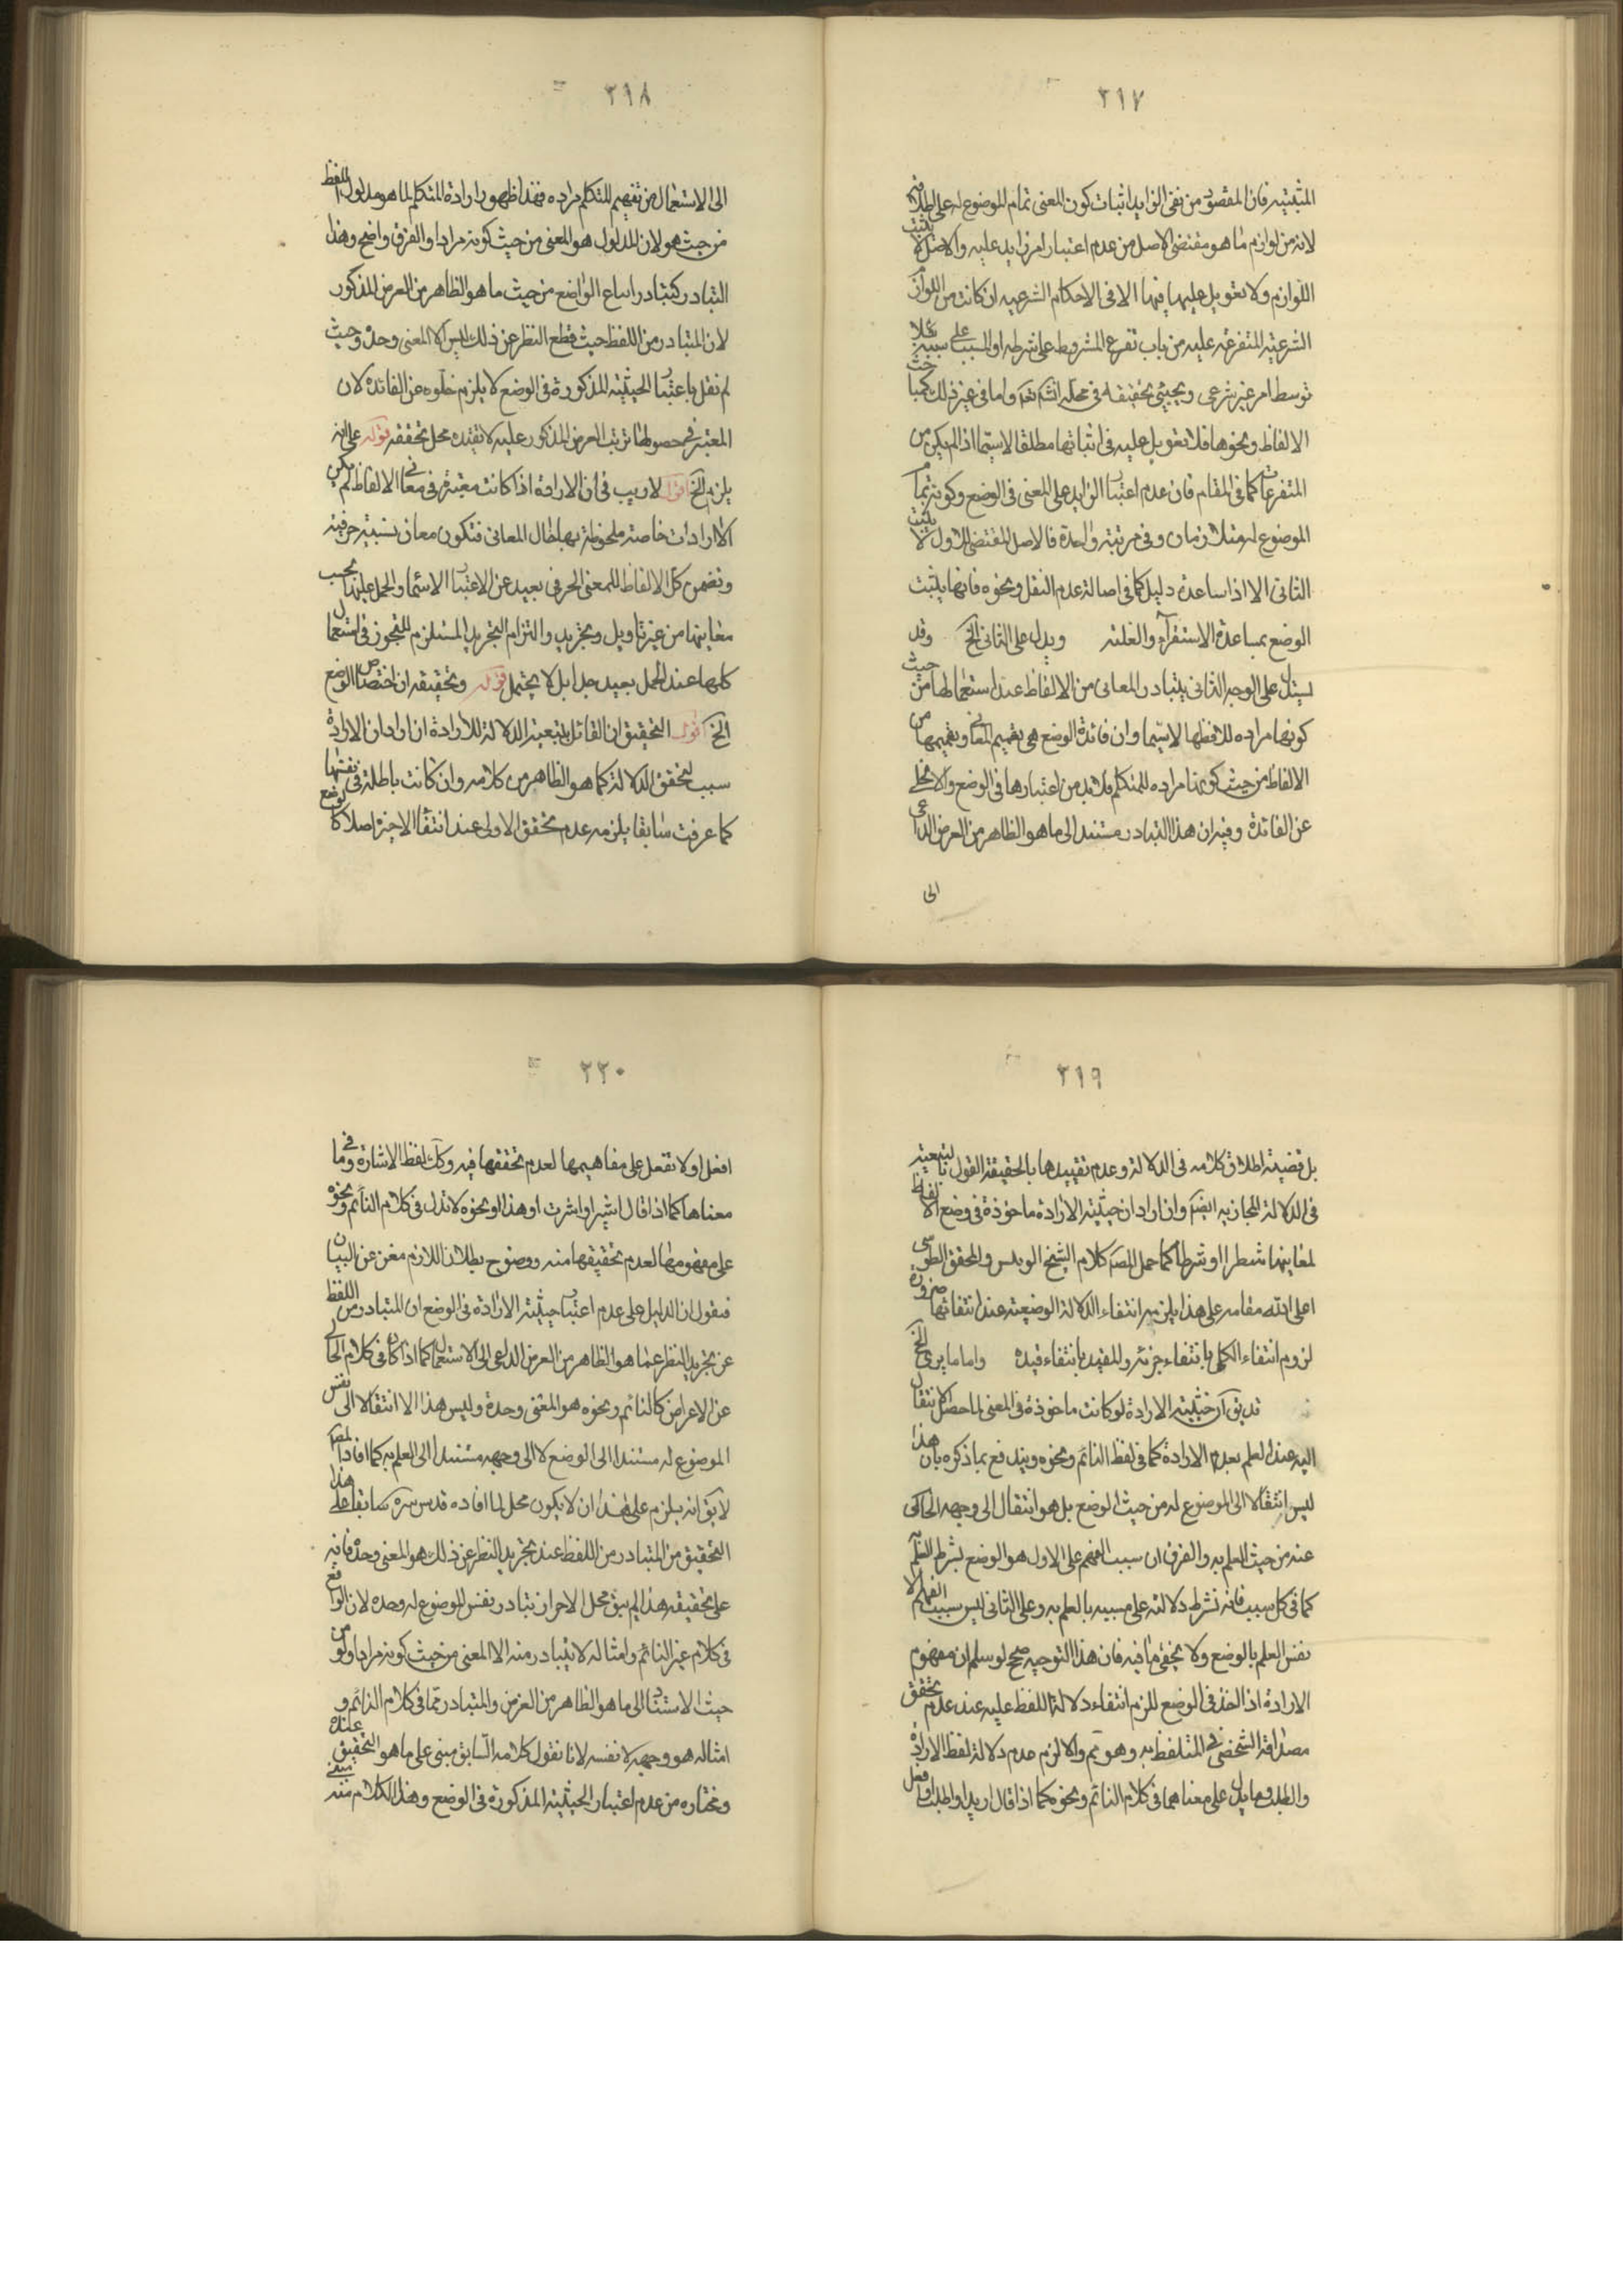 ٢١٧
المثبتية فان المقصود من نفى الزايد اثبات كون المعنى تمام الموضوع له على
لانه من لوازم ما هو مقتضى الاصل من عدم اعتبار امر زايد عليه والاصل لا يثبت
اللوازم ولا تعويل عليها فيها الا فى الاحكام الشرعيه ان كانت من اللوازم
الشرعية المتفرعة عليه من باب تفرع المشروط على شرطه او المسبب على سببه بلا
توسط امر غير شرعى ويجيئ تحقيقه فى محله انشه تعه واما فى غير ذلك كمباحث
الالفاظ ونحوها فلا تعويل عليه فى اثباتها مطلقا لاسيما اذا لم يكن من
المتفرعات كما فى المقام فان عدم اعتبار الزايد على المعنى فى الوضع وكونه تمام
الموضوع له متلازمان وفى مرتبة واحدة فالاصل المقتضى للاول لا يثبت
الثانى الا اذا ساعده دليل كما فى اصالة عدم النقل ونحوه فانها يثبت
الوضع بمساعدة الاستقراء والغلبة ويدل على الثانى الخ وقد
يستدل على الوجه الثانى بتبادر المعانى من الالفاظ عند استعمالها من حيث
كونها مراده للافظها لاسيما وان فائدة الوضع هى تفهيم المعانى وتفهيمها من
الالفاظ من حيث كونها مراده للمتكلم فلا بد من اعتبارها فى الوضع والا لخلى
عن الفائدة وفيه ان هذا التبادر مستند الى ما هو الظاهر من الغرض الداعى
الى
٢١٨
الى الاستعمال من تفهيم المتكلم مراده فهذا ظهور ارادة المتكلم لما هو مدلول اللفظ
من حيث هو لا ان المدلول هو المعنى من حيث كونه مرادا والفرق واضح وهذا
التبادر كتبادر اتباع الواضع من حيث ما هو الظاهر من الغرض المذكور
لان المتبادر من اللفظ حيث قطع النظر عن ذلك ليس الا المعنى وحده وحيث
لم نقل باعتبار الحيثية المذكورة فى الوضع لا يلزم خلوه عن الفائدة لان
المعتبر فى حصولها ترتب الغرض المذكور عليه لا تقيده محل تحققه قوله على انه
يلزم الخ اقول لاريب فى ان الارادة اذا كانت معتبرة فى معانى الالفاظ لم يكن
الا ارادات خاصة ملحوظة بها حال المعانى فتكون معان نسبية حرفية
وتضمن كل الالفاظ للمعنى الحرفى بعيد عن الاعتبار لاسيما والحمل عليها بحسب
معانيها من غير تاويل وتجريد والتزام التجريد المستلزم للتجوز فى استعمال
كلها عند الحمل بعيد جدا بل لا يحتمل قوله وتحقيقه ان اختصاص الوضع
الخ اقول التحقيق ان القائل بتبعية الدلالة للارادة ان اراد ان الارادة
سبب لتحقق الدلالة كما هو الظاهر من كلامه وان كانت باطلة فى نفسها
كما عرفت سابقا يلزمه عدم تحقق الاولى عند انتفاء الاخيرة اصلا كالوضع
٢١٩
بل قضية اطلاق كلامه فى الدلالة وعدم تقييدها بالحقيقة القول بالتبعية
فى الدلالة المجازيه ايضا وان اراد ان حيثية الارادة ماخوذة فى وضع الالفاظ
لمعانيها شطرا او شرطا كما حمل المصه كلام الشيخ الرئيس والمحقق الطوسى
اعلى الله مقامه على هذا يلزمه انتفاء الدلالة الوضعية عند انتفائها ضرورة
لزوم انتفاء الكل بانتفاء جزئه والمقيد بانتفاء قيده واما ما يرى الخ
قد يق ان حيثية الارادة لو كانت ماخوذة فى المعنى لما حصل الانتقال
اليه عند العلم بعدم الارادة كما فى لفظ النائم ونحوه ويندفع بما ذكره بان هذا
ليس انتقالا الى الموضوع له من حيث الوضع بل هو انتقال الى وجهه الحاكى
عنه من حيث العلم به والفرق ان سبب الفهم على الاول هو الوضع بشرط العلم به
كما فى كل سبب فانه تشرط دلالته على مسببه بالعلم به وعلى الثانى ليس سبب الفهم الا
نفس العلم بالوضع ولا يخفى ما فيه فان هذا التوجيه صحيح لو سلم ان مفهوم
الارادة اذا اخذ فى الوضع للزم انتفاء دلالة اللفظ عليه عند عدم تحقق
مصداقه الشخصى فى المتلفظ به وهو مم والا لزم عدم دلالة لفظ الارادة
والطلب وما يدل على معناهما فى كلام النائم ونحوه كما اذا قال اريد او اطلب او افعل
٢٢٠
افعل او لا تفعل على مفاهيمها لعدم تحققها فيه وكك لفظ الاشارة وما فى
معناها كما اذا قال اشير او اشرت او هذا او نحوه لا تدل فى كلام النائم ونحوه
على مفهومها لعدم تحقيقها منه ووضوح بطلان اللازم مغن عن البيان
فنقول ان الدليل على عدم اعتبار حيثية الارادة فى الوضع ان المتبادر من اللفظ
عن تجريد النظر عما هو الظاهر من الغرض الداعى الى الاستعمال كما اذا كان فى كلام الخالى
عن الاعراض كالنائم ونحوه هو المعنى وحدة وليس هذا الا انتقالا الى نفس
الموضوع له مستندا الى الوضع لا الى وجهه مستندا الى العلم به كما افاد المصه
لا يق انه يلزم على هذا ان لا يكون محل لما افاده قدس سره سابقا على هذا
التحقيق من المتبادر من اللفظ عند تجريد النظر عن ذلك هو المعنى وحده فانه
على تحقيقه هذا لم يبق محل لاحراز تبادر نفس الموضوع له وحده لان الواقع
فى كلام غير النائم وامثاله لا يتبادر منه الا المعنى من حيث كونه مرادا ولو من
حيث الاستناد الى ما هو الظاهر من الغرض والمتبادر مما فى كلام النائم و
امثاله هو وجهه لا نفسه لانا نقول كلامه السابق مبنى على ما هو التحقيق عنده
ومختاره من عدم اعتبار الحيثية المذكورة فى الوضع وهذا الكلام منه مبنى